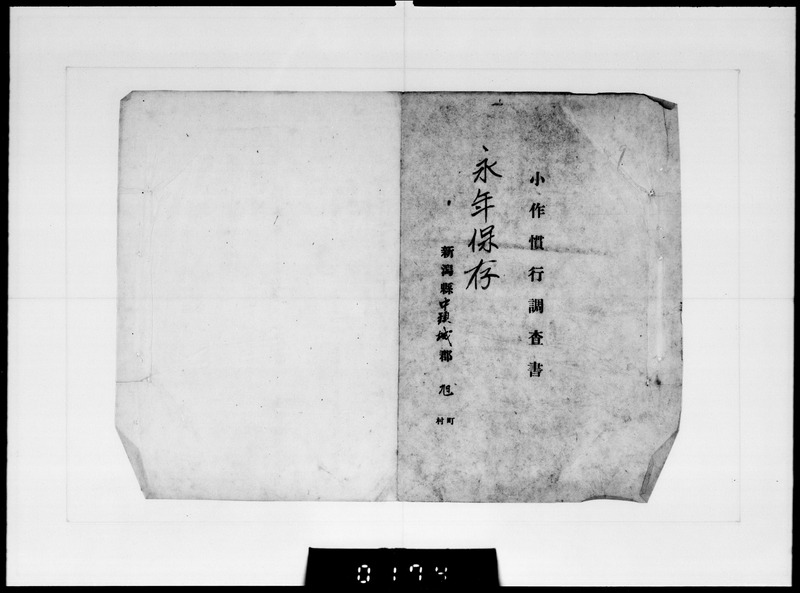 小作慣行調査書
永年保存
新潟縣中頚城郡 旭
町村
0174